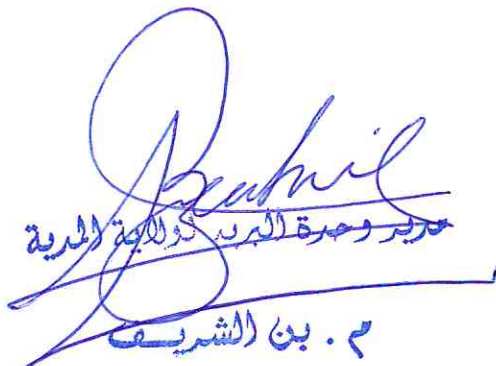 مدير وحدة البريد لولاية المدية
م . بن الشريف